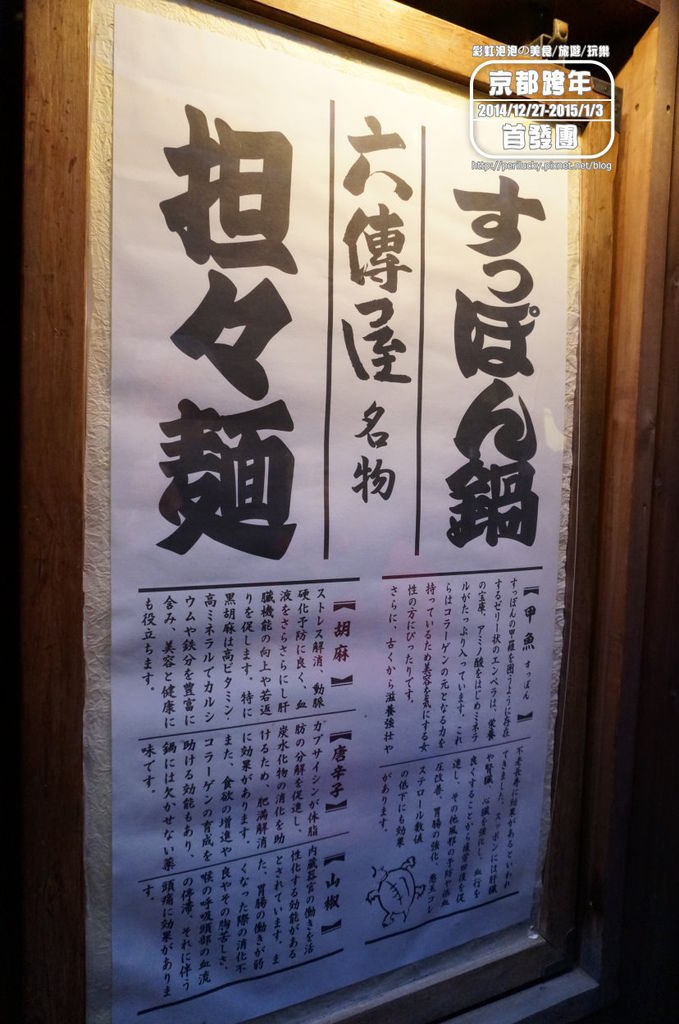 彩虹泡泡の美食/旅遊/玩樂
京都跨年
2014/12/27-2015/1/3
首發團
http://perilucky.pixnet.net/blog
すっぽん鍋
六傳屋 名物
担々麺
【甲魚 すっぽん】
すっぽんの甲羅を囲うように存在
するゼリー状のエンペラは、栄養
の宝庫。アミノ酸をはじめミネラ
ルがたっぷり入っています。これ
らはコラーゲンの元となる力を
持っているため美容を気にする女
性の方にぴったりです。
さらに、古くから滋養強壮や
不老長寿に効果があるといわれ
てきました。スッポンには肝臓
や腎臓、心臓を強化し、血行を
良くすることから疲労回復を促
進し、その他風邪の予防や低血
圧改善、胃腸の強化、悪玉コレ
ステロール数値
の低下にも効果
があります。
【胡麻】
ストレス解消、動脈
硬化予防に良く、血
液をさらさらにし肝
臓機能の向上や若返
りを促します。特に
黒胡麻は高ビタミン・
高ミネラルでカルシ
ウムや鉄分を豊富に
含み、美容と健康に
も役立ちます。
【唐辛子】
カプサイシンが体脂
肪の分解を促進し、
炭水化物の消化を助
けるため、肥満解消
に効果があります。
また、食欲の増進や
コラーゲンの育成を
助ける効能もあり、
鍋には欠かせない薬
味です。
【山椒】
内蔵器官の働きを活
性化する効能がある
とされています。ま
た、胃腸の働きが弱
くなった際の消化不
良やその胸苦しさ、
喉の呼吸頭部の血流
の停滞、それに伴う
頭痛に効果がありま
す。